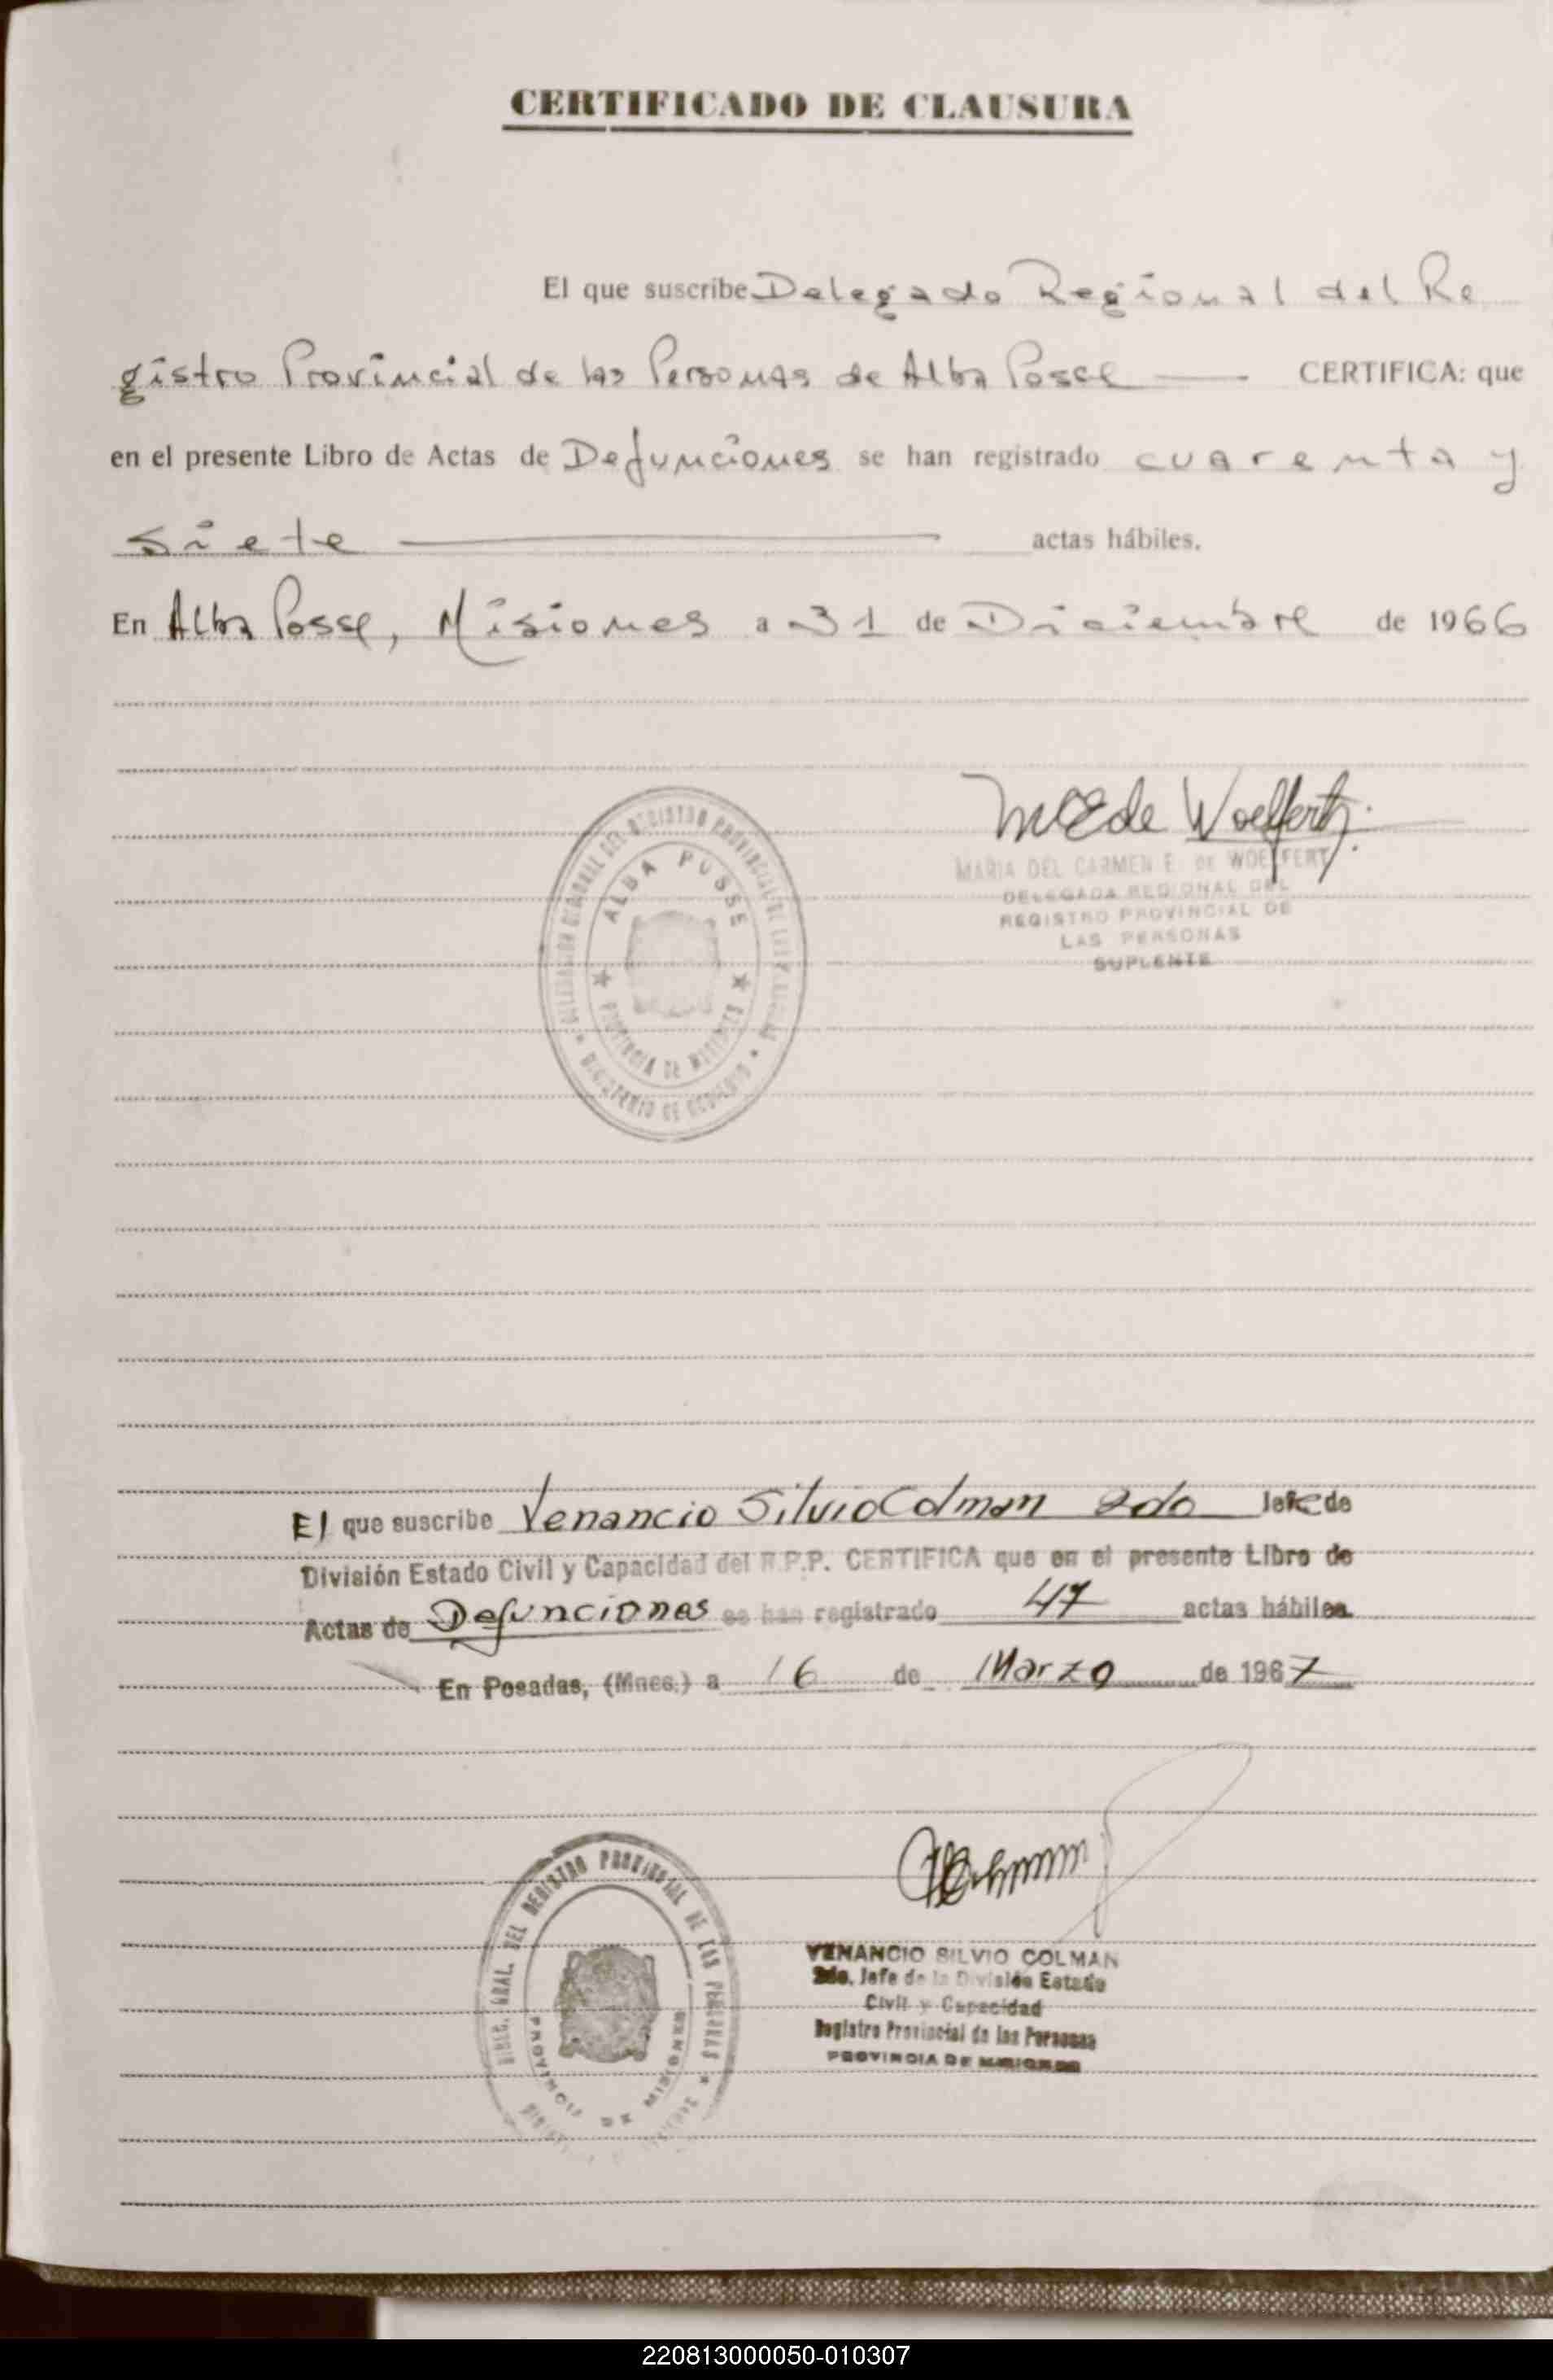 CERTIFICADO DE CLAUSURA
El que suscribe Delegado Regional del Re
gistro Provincial de las Personas de Alba Posse CERTIFICA: que
en el presente Libro de Actas de Defunciones se han registrado cuarenta y
siete actas hábiles.
En Alba Posse, Misiones a 31 de Diciembre de 1966
DELEGACION REGIONAL DEL REGISTRO PROVINCIAL DE LAS PERSONAS
ALBA POSSE
PROVINCIA DE MISIONES
MINISTERIO DE GOBIERNO
MCE de Woelfert
MARIA DEL CARMEN E. DE WOELFERT
DELEGADA REGIONAL DEL
REGISTRO PROVINCIAL DE
LAS PERSONAS
SUPLENTE
El que suscribe Venancio Silvio Colman 2do Jefe de
División Estado Civil y Capacidad del R.P.P. CERTIFICA que en el presente Libro de
Actas de Defunciones se han registrado 47 actas hábiles.
En Posadas, (Mnes.) a 16 de Marzo de 1967
DIREC. GRAL. DEL REGISTRO PROVINCIAL DE LAS PERSONAS
PROVINCIA DE MISIONES
VENANCIO SILVIO COLMAN
2do. Jefe de la División Estado
Civil y Capacidad
Registro Provincial de las Personas
PROVINCIA DE MISIONES
220813000050-010307